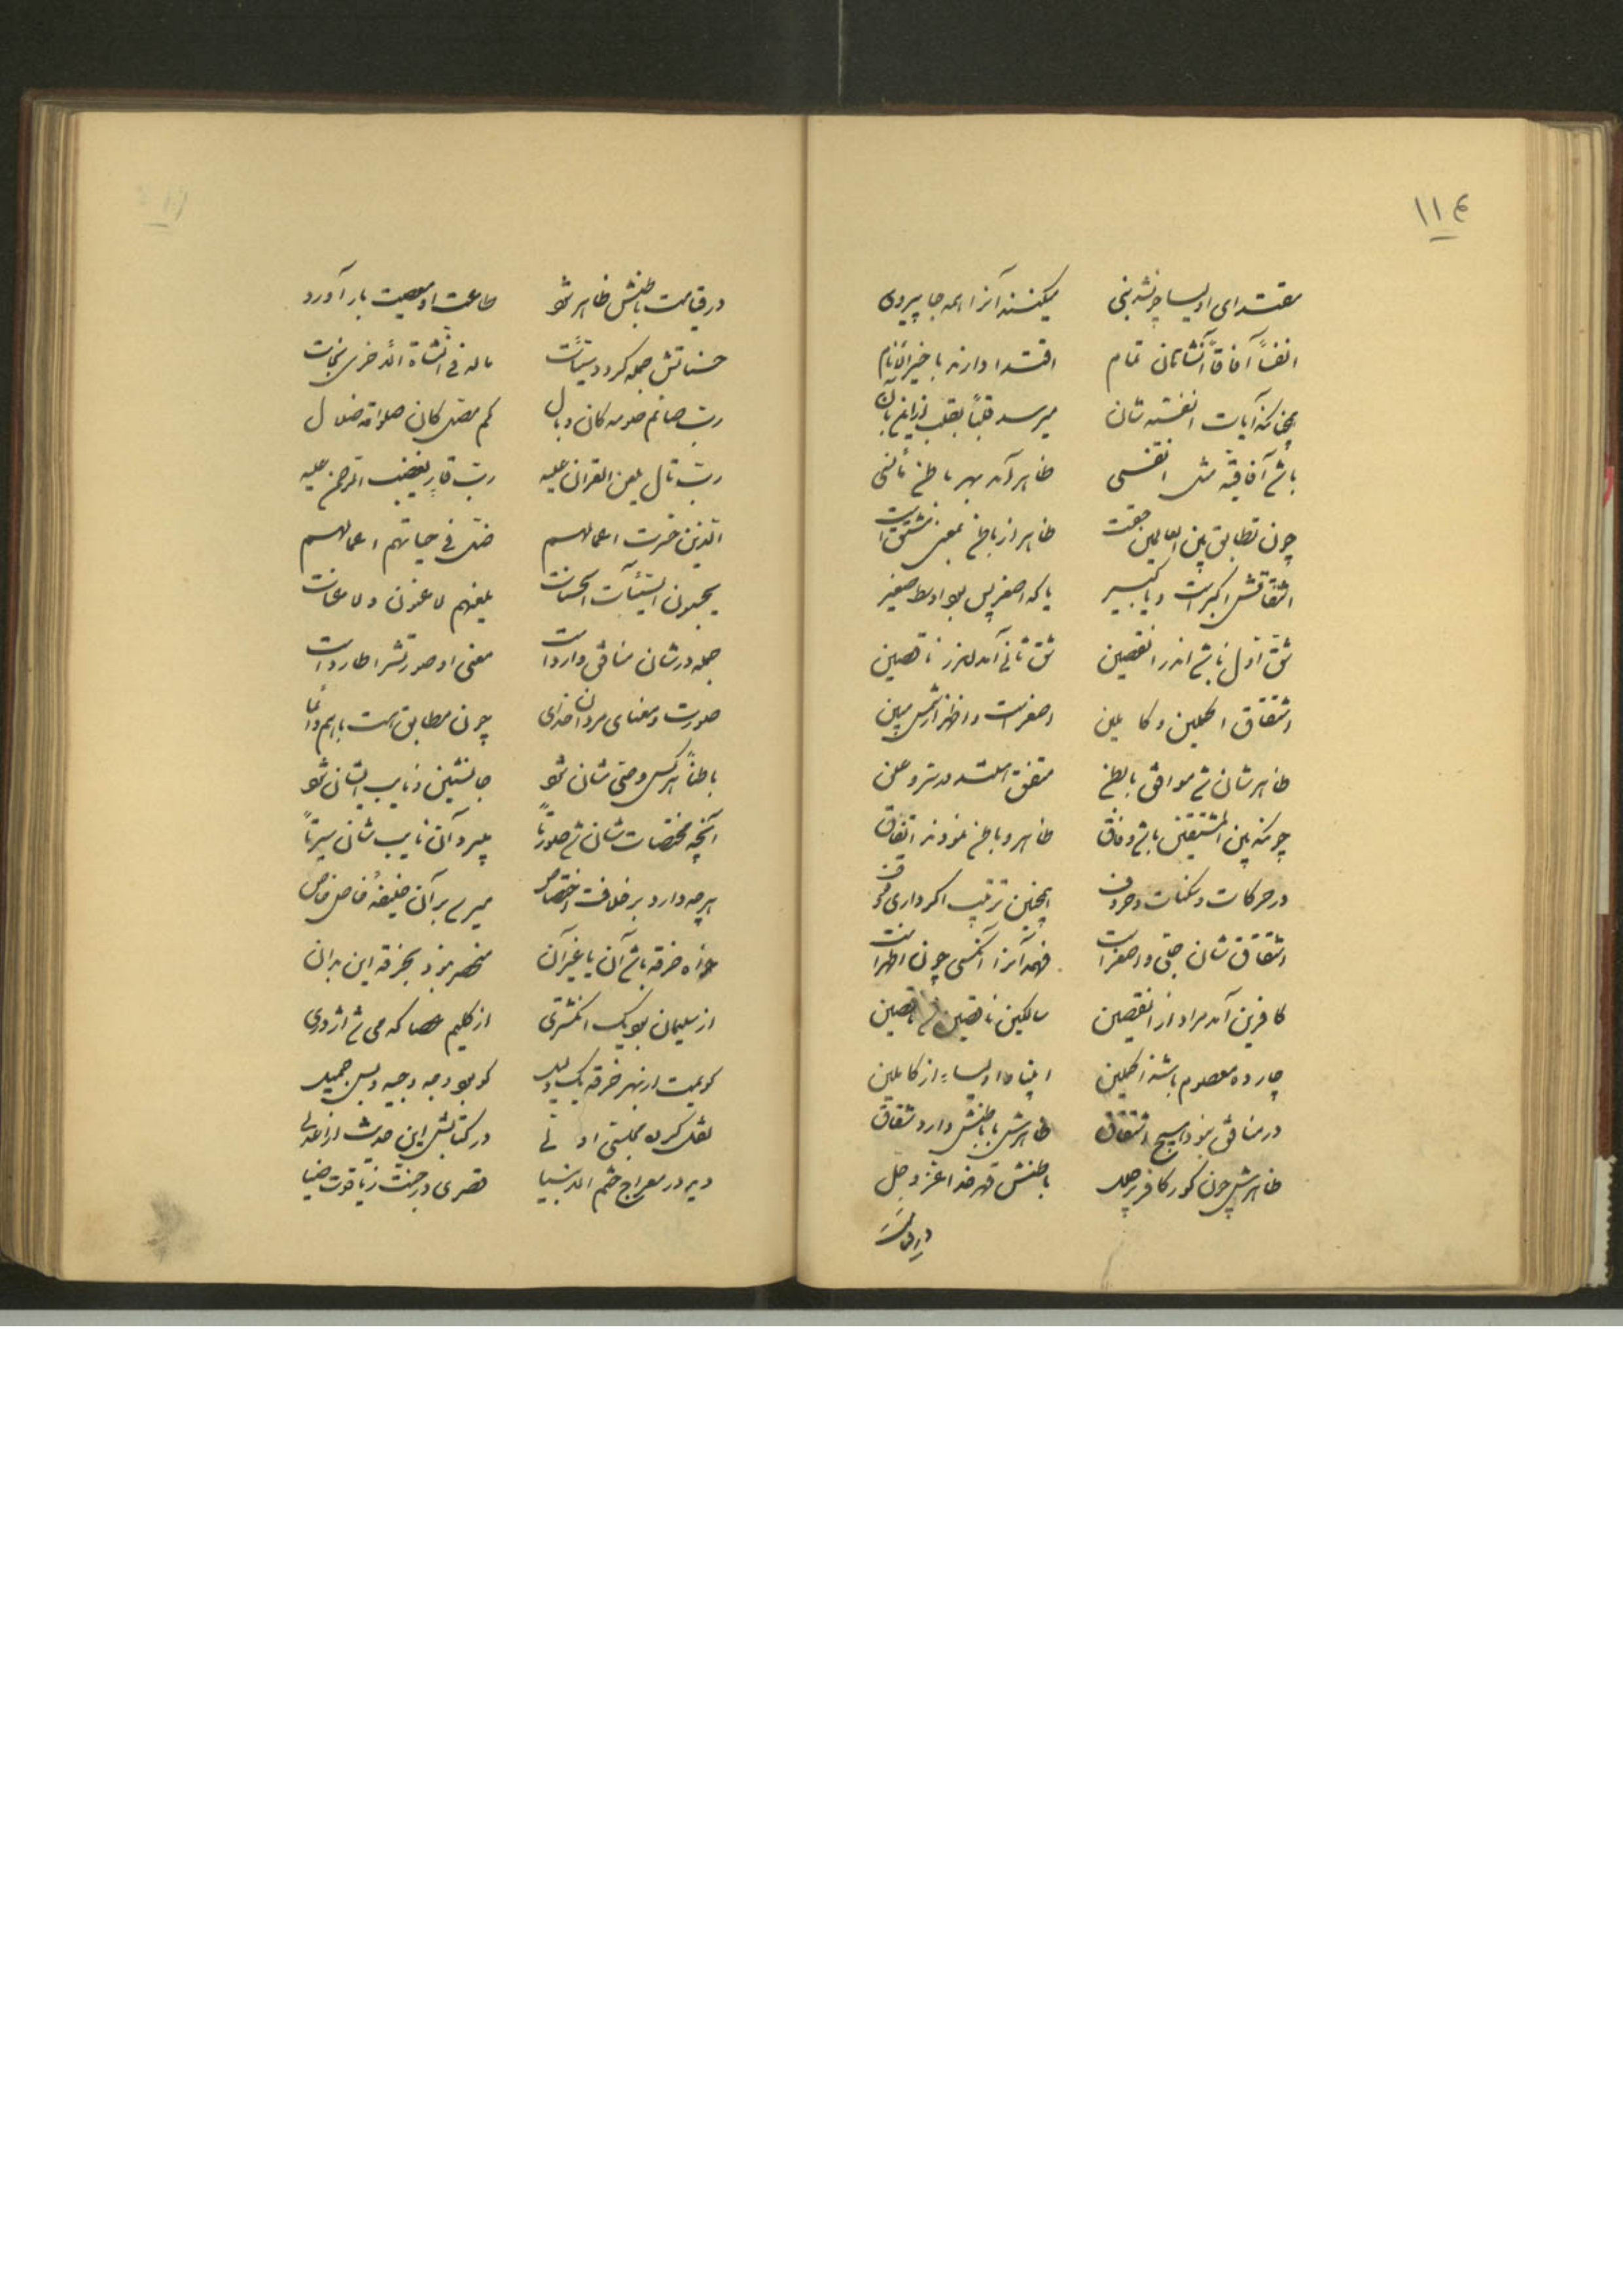 ۱۱۴
مقتدای اولیا چونشد نبی میکنند آنرا همه جا پیروی
انفساً آفاقاً نشاتان تمام اقتدا دارند با خیر الانام
چون تطابق بین العالمین حقست ظاهر از باطن بمعنی مشتق است
اشتقاقش اکبر است و یا کبیر یا که اصغر پس بود اوسط صغیر
شق اول باشد اندر انقصین شق ثانی آمد اندر ناقصین
اشتقاق اکملین و کاملین اصغر است و اظهر از شمس مبین
ظاهرشان شد موافق با بطن متفق استند در سر و علن
چونکه بین المشتقین باشد وفاق ظاهر و باطن نمودند اتفاق
در حرکات و سکنات و حروف همچنین ترتیب اگر داری وقوف
اشتقاق شان جلی و اصغر است فهمد آنرا آنکسی چون اظهر است
کافرین آمد مراد از انقصین سالکین ناقصین شد ناقصین
چارده معصوم باشند اکملین انبیا و اولیاء از کاملین
در منافق نبود هیچ اشتقاق ظاهرش با باطنش دارد شقاق
ظاهرش چون گور کافر پر حلل باطنش قهر خدا عز و جل
در قیامت باطنش ظاهر شود طاعت او معصیت بار آورد
حسناتش جمله گردد سیئات ماله فی النشاة الاخری نجات
رب صائم صومه کان وبال کم مصل کان صلواته ضلال
رب تال یلعن القران علیه رب قار یغضب الرحمن علیه
الذین خسرت اعمالهم ضل فی حیاتهم اعمالهم
یحسبون السیئات الحسنات
جمله در شان منافق وارد است معنی او صورتش را طارد است
صورت و معنای مردان خدای چون مطابق هست باهم دائما
باطناً هر کس وصی شان شود جانشین و نایب ایشان شود
آنچه مختصات شان شد صورتاً میبرد آن نایب شان سیرتاً
هرچه دارد بر خلافت اختصاص میرسد بر آن خلیفهٔ فاضل خاص
خواه خرقه باشد آن یا غیر آن منحصر نبود بخرقه این بدان
از سلیمان بود یک انگشتری از کلیم عصا که می شد اژدری
نقل کرده مجلسی اولی در کتابش این حدیث از آن علی
دید در معراج ختم الانبیا قصری در جنت ز یاقوت ضیا